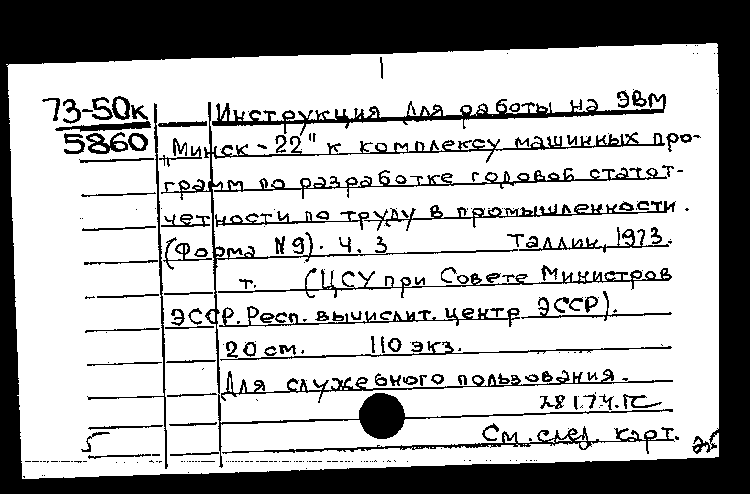 73-50к Инструкция для работы на ЭВМ
5860 „Минск-22" к комплексу машинных про-
грамм по разработке годовой статот-
четности по труду в промышленности.
(Форма N9). Ч. 3 Таллин, 1973.
т. (ЦСУ при Совете Министров
ЭССР. Респ. вычислит. центр ЭССР).
20 см. 110 экз.
Для служебного пользования.
См. след. карт.
5